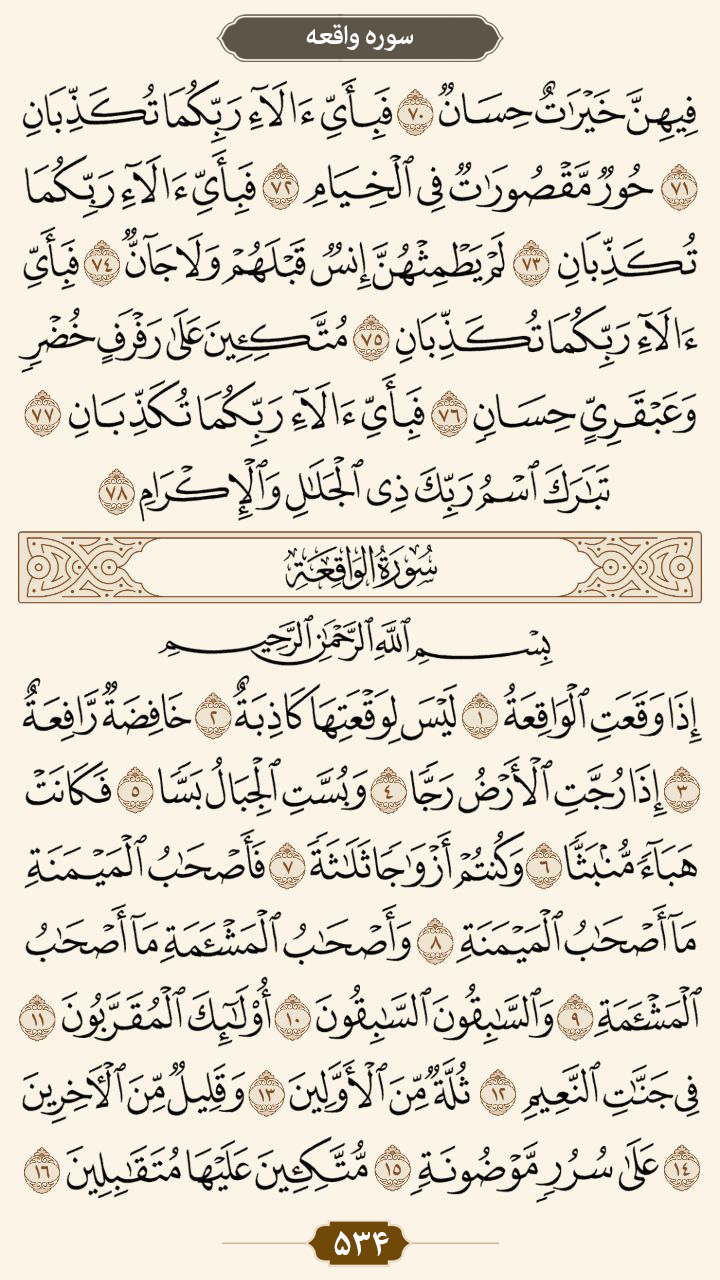 سوره واقعه
فِيهِنَّ خَيْرَٰتٌ حِسَانٌ ٧٠ فَبِأَيِّ ءَالَآءِ رَبِّكُمَا تُكَذِّبَانِ
٧١ حُورٌ مَّقْصُورَٰتٌ فِى ٱلْخِيَامِ ٧٢ فَبِأَيِّ ءَالَآءِ رَبِّكُمَا
تُكَذِّبَانِ ٧٣ لَمْ يَطْمِثْهُنَّ إِنسٌ قَبْلَهُمْ وَلَا جَآنٌّ ٧٤ فَبِأَيِّ
ءَالَآءِ رَبِّكُمَا تُكَذِّبَانِ ٧٥ مُتَّكِئِينَ عَلَىٰ رَفْرَفٍ خُضْرٍ
وَعَبْقَرِيٍّ حِسَانٍ ٧٦ فَبِأَيِّ ءَالَآءِ رَبِّكُمَا تُكَذِّبَانِ ٧٧
تَبَٰرَكَ ٱسْمُ رَبِّكَ ذِى ٱلْجَلَٰلِ وَٱلْإِكْرَامِ ٧٨
سُورَةُ الوَاقِعَةِ
بِسْمِ ٱللَّهِ ٱلرَّحْمَٰنِ ٱلرَّحِيمِ
إِذَا وَقَعَتِ ٱلْوَاقِعَةُ ١ لَيْسَ لِوَقْعَتِهَا كَاذِبَةٌ ٢ خَافِضَةٌ رَّافِعَةٌ
٣ إِذَا رُجَّتِ ٱلْأَرْضُ رَجًّا ٤ وَبُسَّتِ ٱلْجِبَالُ بَسًّا ٥ فَكَانَتْ
هَبَآءً مُّنۢبَثًّا ٦ وَكُنتُمْ أَزْوَٰجًا ثَلَٰثَةً ٧ فَأَصْحَٰبُ ٱلْمَيْمَنَةِ
مَآ أَصْحَٰبُ ٱلْمَيْمَنَةِ ٨ وَأَصْحَٰبُ ٱلْمَشْـَٔمَةِ مَآ أَصْحَٰبُ
ٱلْمَشْـَٔمَةِ ٩ وَٱلسَّٰبِقُونَ ٱلسَّٰبِقُونَ ١٠ أُوْلَٰٓئِكَ ٱلْمُقَرَّبُونَ ١١
فِى جَنَّٰتِ ٱلنَّعِيمِ ١٢ ثُلَّةٌ مِّنَ ٱلْأَوَّلِينَ ١٣ وَقَلِيلٌ مِّنَ ٱلْءَاخِرِينَ
١٤ عَلَىٰ سُرُرٍ مَّوْضُونَةٍ ١٥ مُّتَّكِئِينَ عَلَيْهَا مُتَقَٰبِلِينَ ١٦
۵۳۴